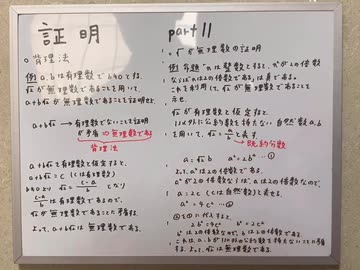 証明
○背理法
例 a,bは有理数でb≠0とする。
√2が無理数であることを用いて、
a+b√2が無理数であることを証明せよ。
a+b√2 → 有理数でないことを証明
矛盾 ⇒ 無理数である
背理法
a+b√2を有理数と仮定すると、
a+b√2=c（cは有理数）
b≠0より √2=(c-a)/b となり
(c-a)/bは有理数なので、
√2が無理数であることに矛盾する。
よって、a+b√2は無理数である。
part 11
○√2が無理数の証明
例 命題"nは整数とすると、n²が2の倍数
ならばnは2の倍数である"は真である。
これを利用して、√2が無理数であることを
示せ。
√2が有理数と仮定すると
1以外に公約数を持たない自然数a,b
を用いて、√2=a/bと表す。
既約分数
a=√2b a²=2b² …①
よって、a²は2の倍数である。
a²が2の倍数ならば、aは2の倍数なので、
a=2c（cは自然数）と表せる。
a²=4c² …②
②を①に代入すると、
2b²=4c² b²=2c²
b²は2の倍数なので、bは2の倍数である。
これは、a,bが1以外の公約数を持たないことに矛盾
する。よって、√2は無理数。